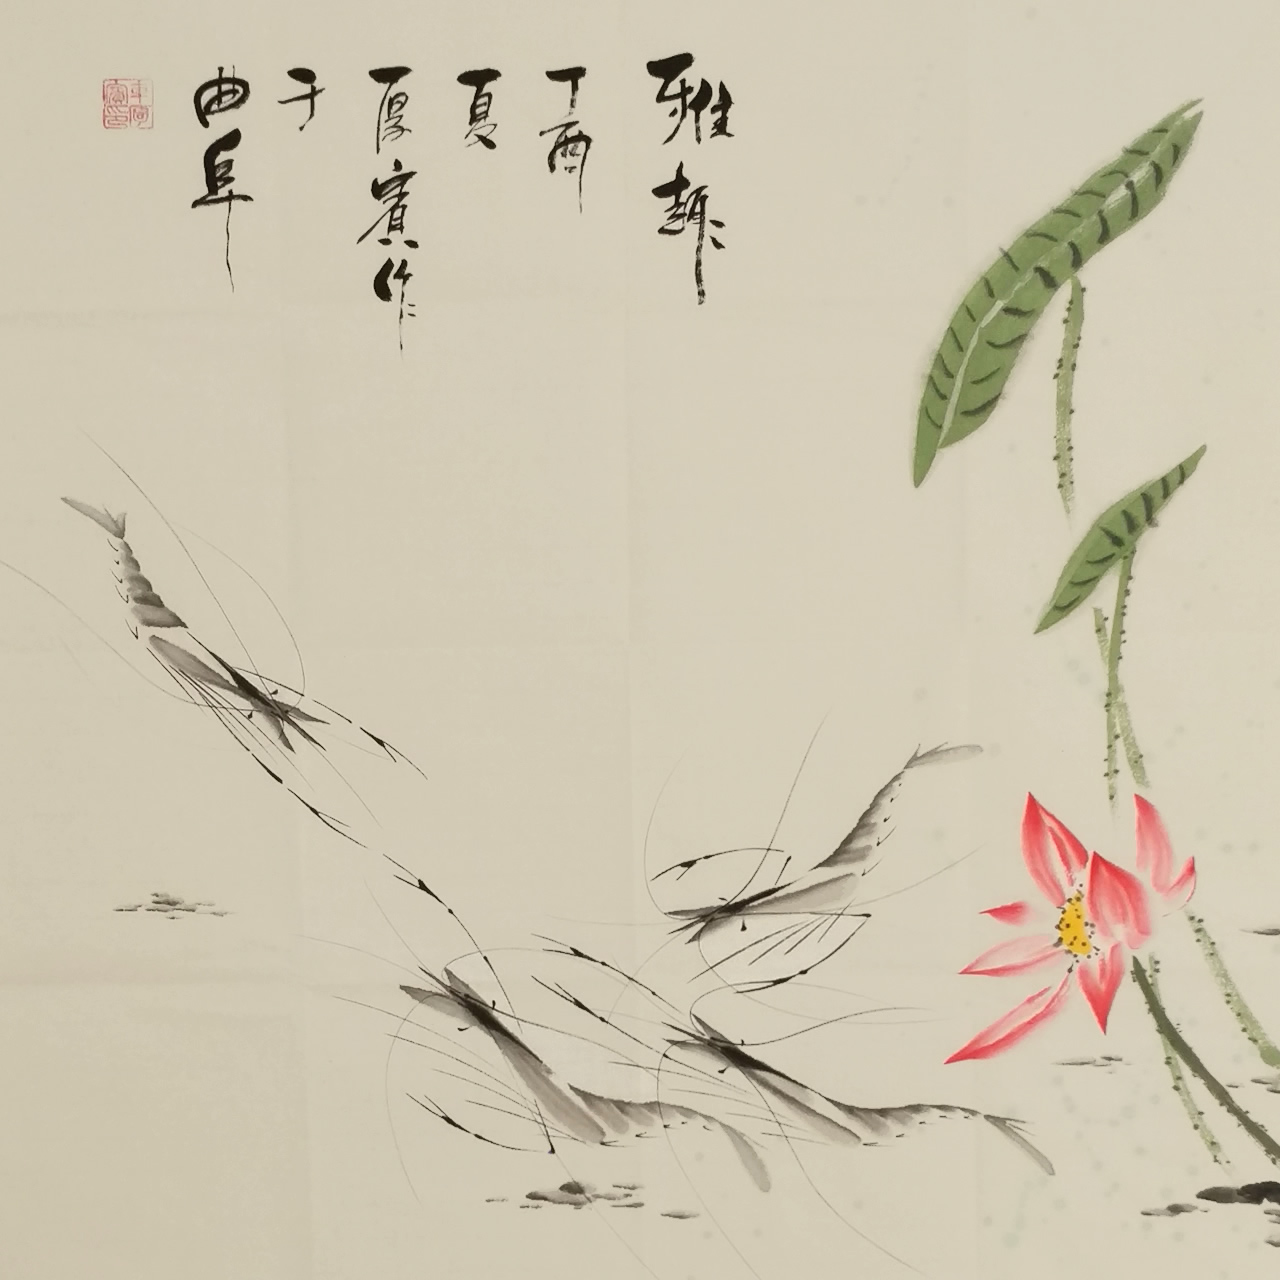 雅趣
丁酉
夏
厚賓作
于
曲阜